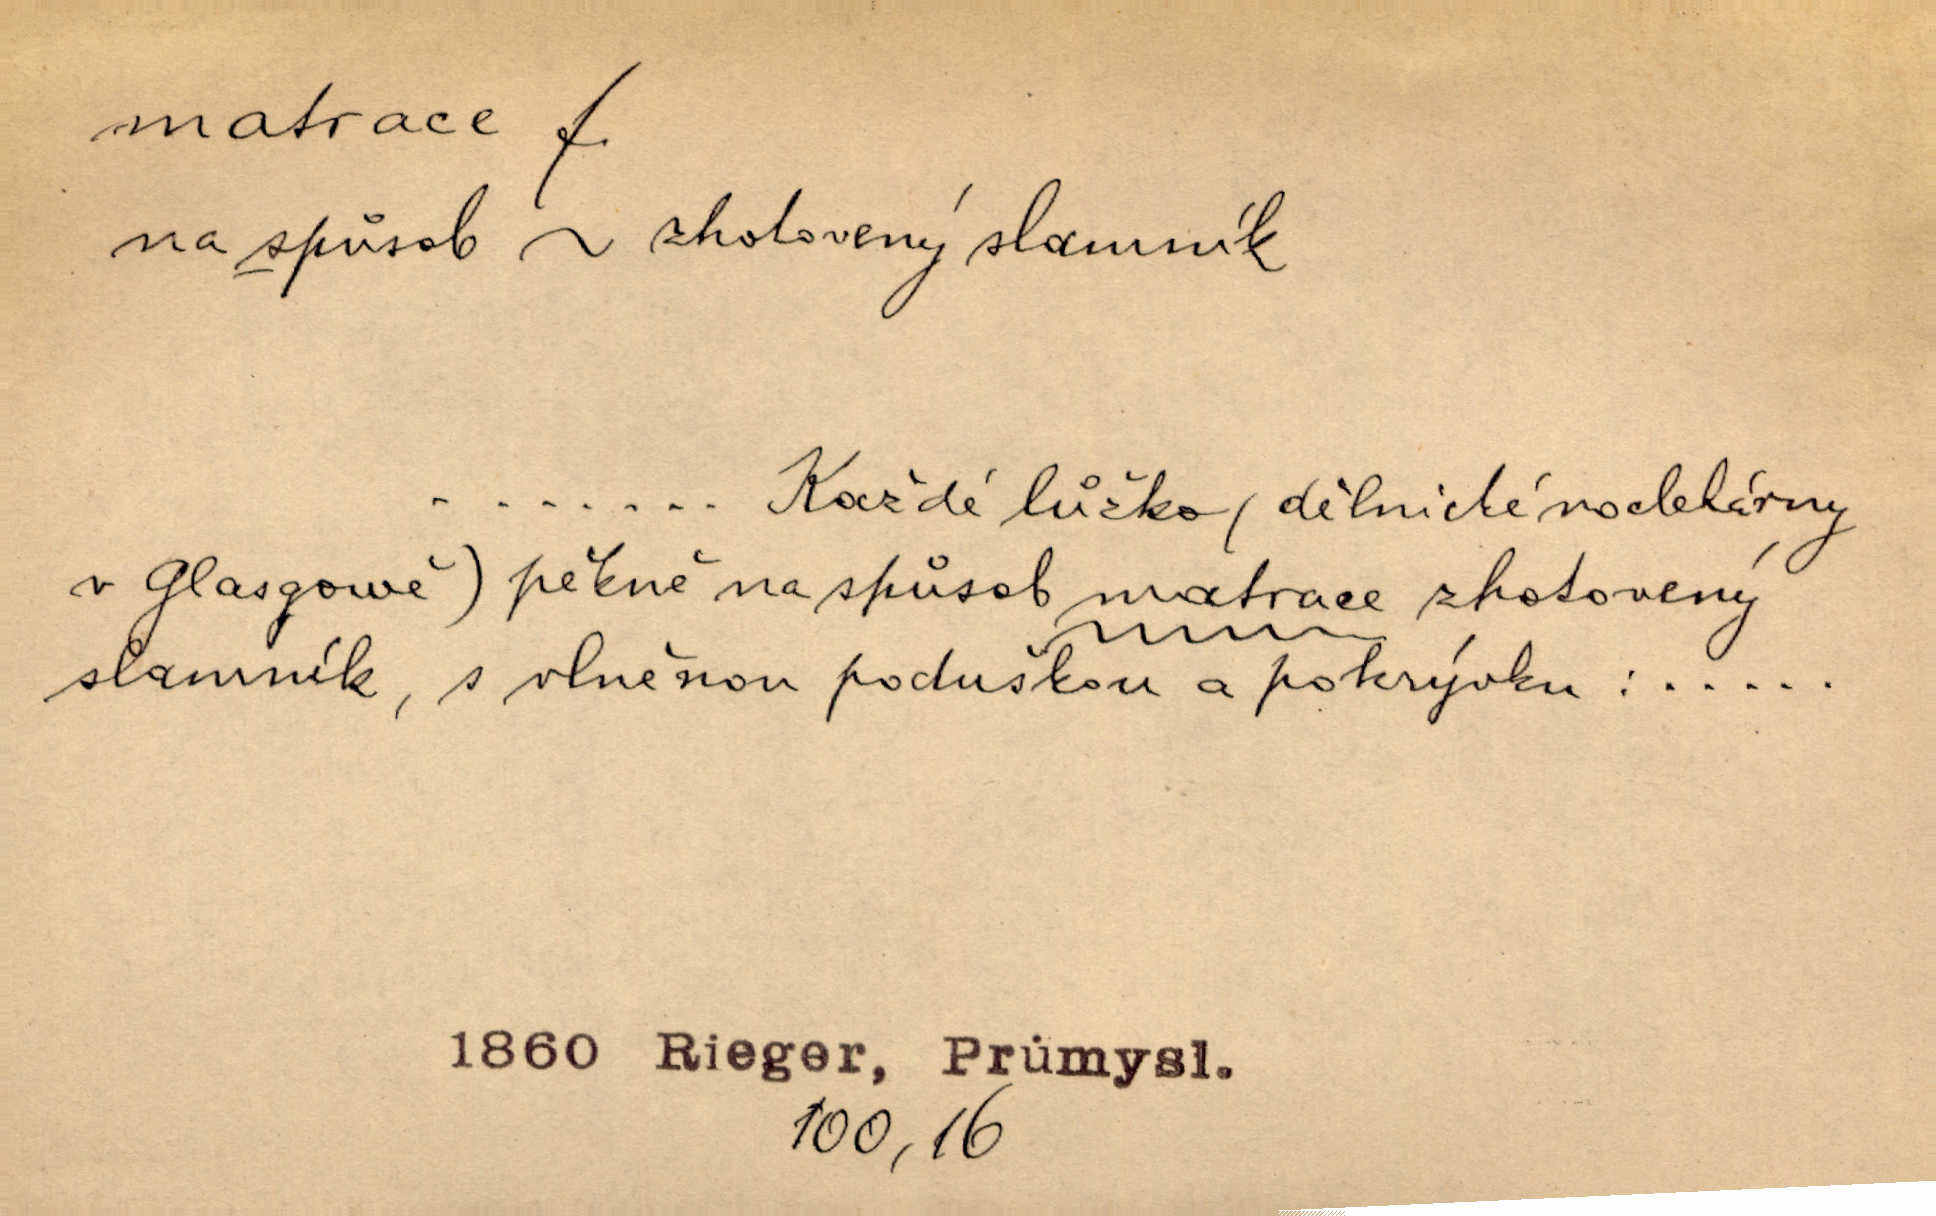 matrace f.
na spůsob ~ zhotovený slamník
. . . . . . . Každé lůžko (dělnické noclehárny
v Glasgowě) pěkně na spůsob matrace zhotovený
slamník, s vlněnou poduškou a pokrývku : . . . . .
1860 Rieger, Průmysl.
100,16